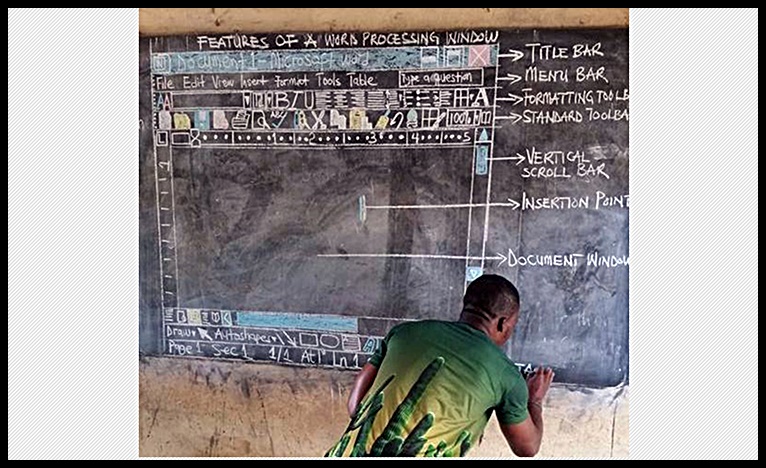 FEATURES OF A WORD PROCESSING WINDOW
W Document 1 - Microsoft Word
TITLE BAR
File Edit View Insert Format Tools Table
Type a question
MENU BAR
AA
B I U
A
FORMATTING TOOLB
100%
STANDARD TOOLBA
L
1 2 3 4 5
VERTICAL
SCROLL BAR
INSERTION POINT
DOCUMENT WINDOW
Draw AutoShapes A
Page 1 Sec 1 1/1 At 1" Ln 1
STA